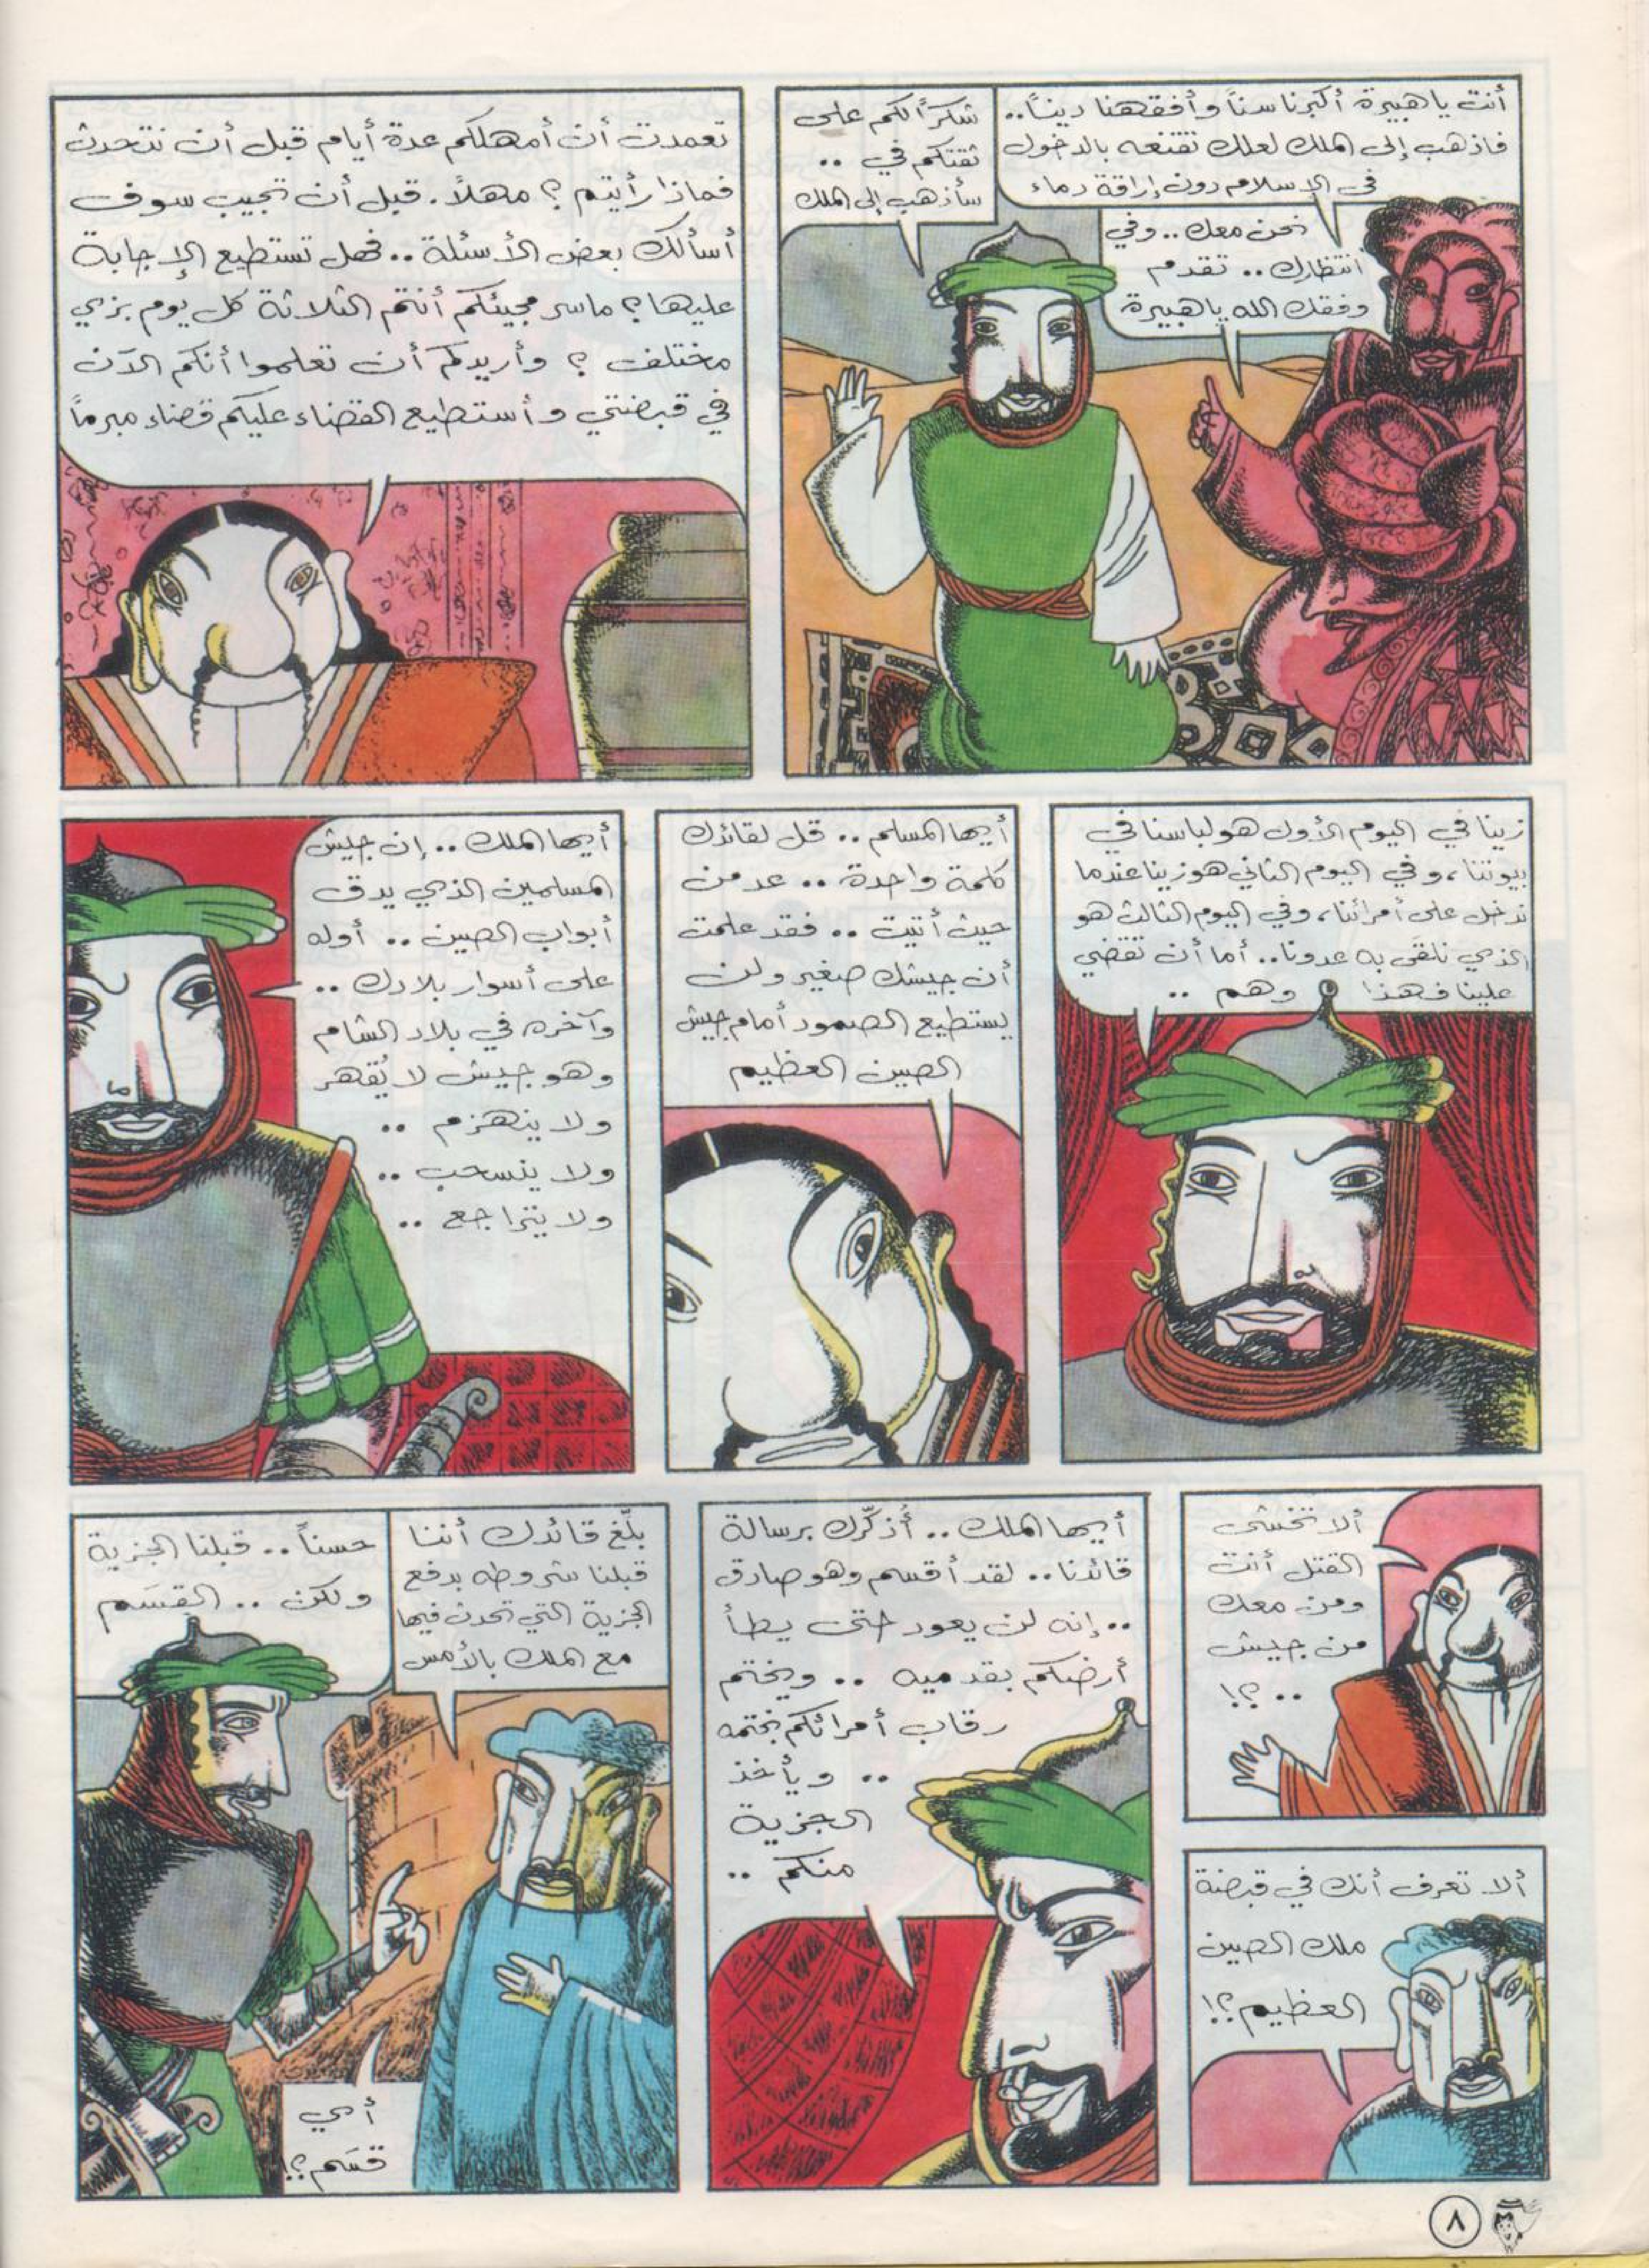 أنت ياهبيرة أكبرنا سناً وأفقهنا ديناً..
فاذهب إلى الملك لعلك تقنعه بالدخول
في الإسلام دون إراقة دماء
شكرًا لكم على
ثقتكم في ..
سأذهب إلى الملك
نحن معك .. وفي
انتظارك .. تقدم
وفقك الله ياهبيرة
تعمدت أن أمهلكم عدة أيام قبل أن نتحدث
فماذا رأيتم ؟ مهلاً. قبل أن تجيب سوف
أسألك بعض الأسئلة .. فهل تستطيع الإجابة
عليها؟ ماسر مجيئكم أنتم الثلاثة كل يوم بزي
مختلف ؟ وأريدكم أن تعلموا أنكم الآن
في قبضتي وأستطيع القضاء عليكم قضاء مبرماً
زينا في اليوم الأول هو لباسنا في
بيوتنا، وفي اليوم الثاني هو زينا عندما
ندخل على أمرائنا، وفي اليوم الثالث هو
الذي نلقى به عدونا.. أما أن تقضي
علينا فهذا وهم ..
أيها المسلم .. قل لقائدك
كلمة واحدة .. عد من
حيث أتيت .. فقد علمت
أن جيشك صغير ولن
يستطيع الصمود أمام جيش
الصين العظيم
أيها الملك .. إن جيش
المسلمين الذي يدق
أبواب الصين .. أوله
على أسوار بلادك ..
وآخره في بلاد الشام
وهو جيش لا يُقهر
ولا ينهزم ..
ولا ينسحب ..
ولا يتراجع ..
ألا تخشى
القتل أنت
ومن معك
من جيش
.. ؟!
ألا تعرف أنك في قبضة
ملك الصين
العظيم؟!
أيها الملك .. أُذكّرك برسالة
قائدنا .. لقد أقسم وهو صادق
.. إنه لن يعود حتى يطأ
أرضكم بقدميه .. ويختم
رقاب أمرائكم بختمه
.. ويأخذ
الجزية
منكم ..
بلّغ قائدك أننا
قبلنا شروطه بدفع
الجزية التي تحدث فيها
مع الملك بالأمس
حسناً .. قبلنا الجزية
ولكن .. القسَم
أي
قسَم؟!
٨